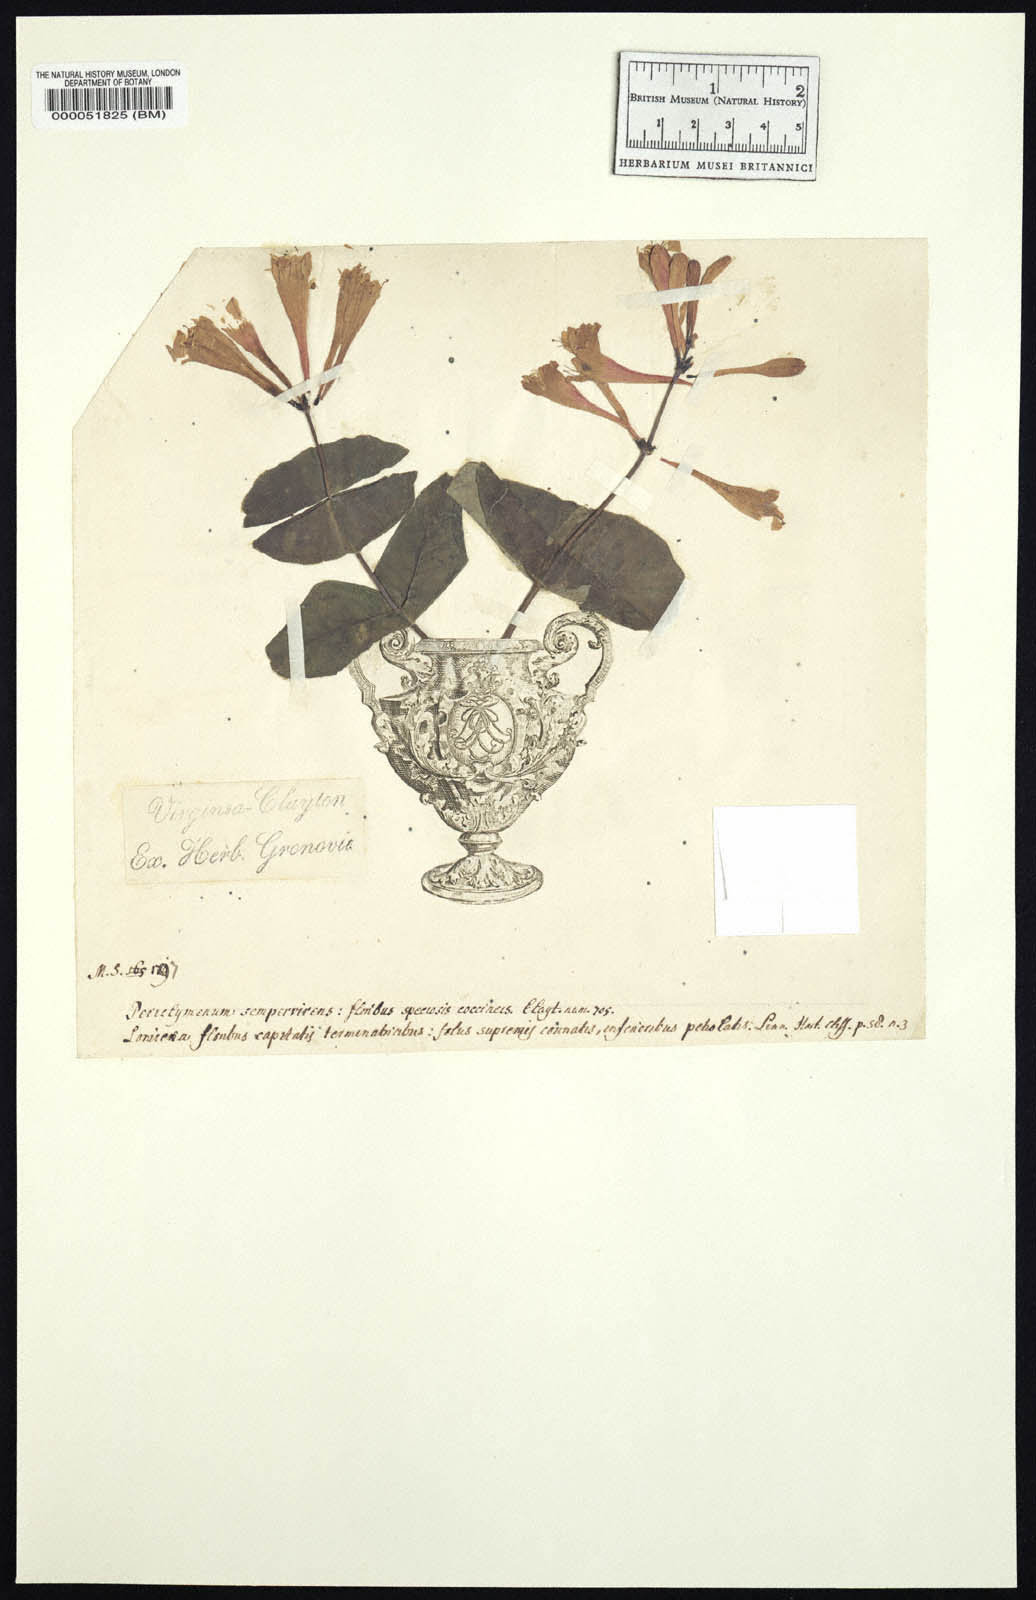 THE NATURAL HISTORY MUSEUM, LONDON
DEPARTMENT OF BOTANY
000051825 (BM)
1 2
BRITISH MUSEUM (NATURAL HISTORY)
1 2 3 4 5
HERBARIUM MUSEI BRITANNICI
Virginia - Clayton
Ex. Herb. Gronovii
M. S.
Periclymenum sempervirens: floribus speciosis coccineis. Clayt. num. 705.
Lonicera floribus capitatis terminatricibus: foliis supremis connatis, inferioribus petiolatis. Linn. Hort. cliff. p. 58. n. 3